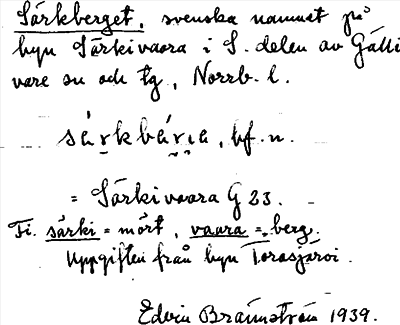 Särkberget, svenska namnet på
byn Särkivaara i S. delen av Gälli
vare sn och tg, Norrb. l.
särkbärıa, bf. n.
= Särkivaara G 23.
Fi. särki = mört, vaara = berg.
Uppgiften från byn Torasjärvi.
Edvin Brännström 1939.